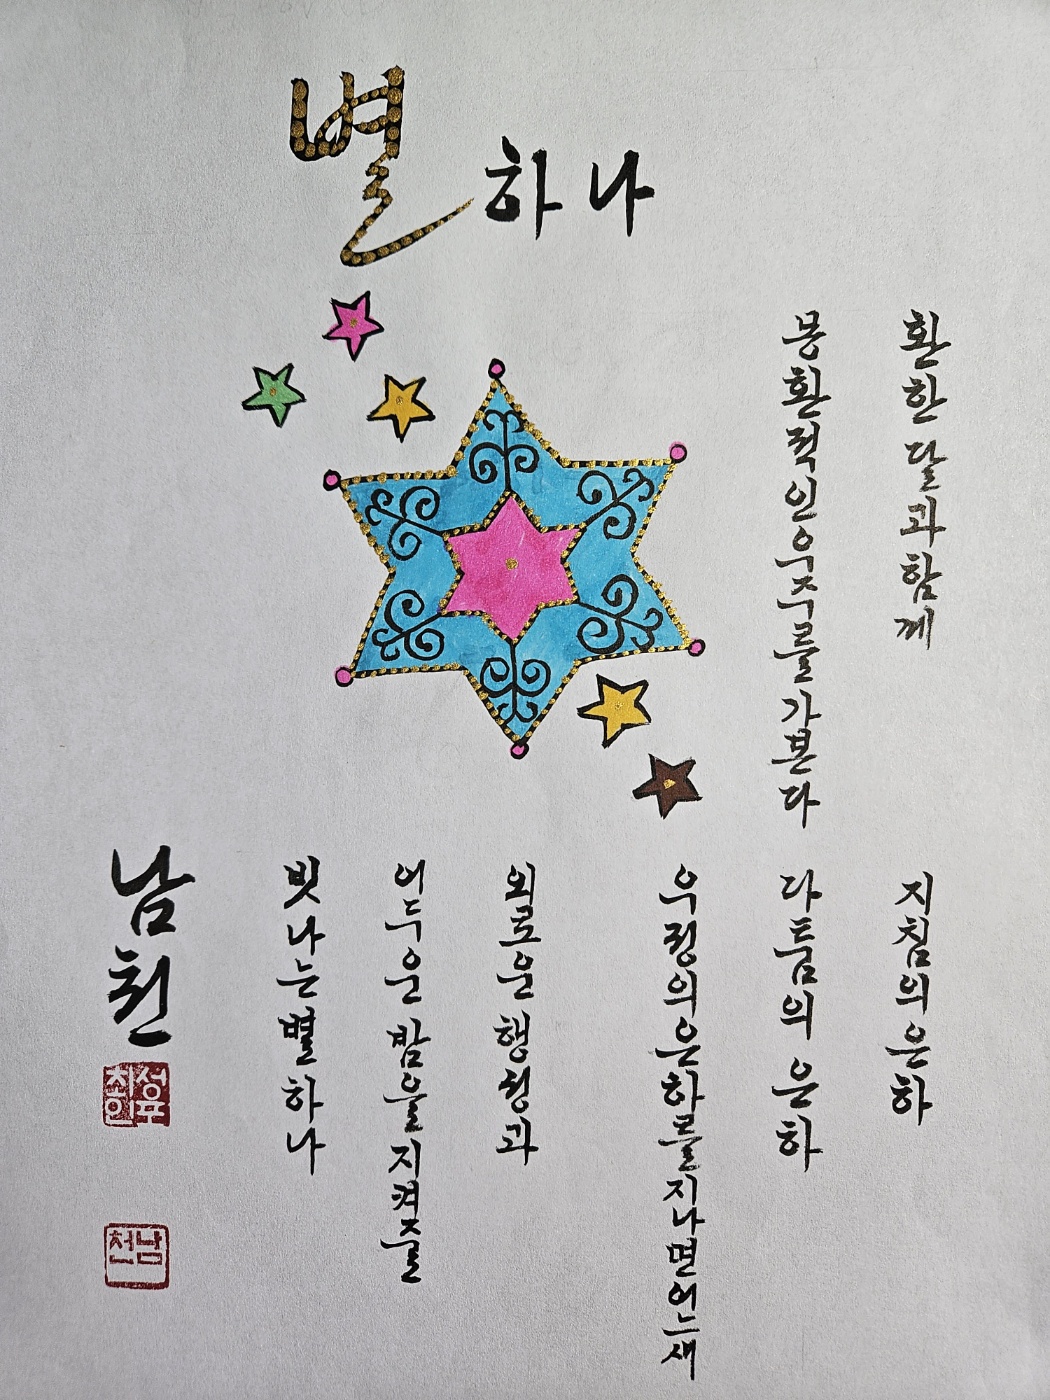 별 하나
환한 달과 함께
몽환적인 우주를 가본다
지침의 은하
다툼의 은하
우정의 은하를 지나면 어느새
외로운 행성과
어두운 밤을 지켜줄
빛나는 별 하나
남천
남천